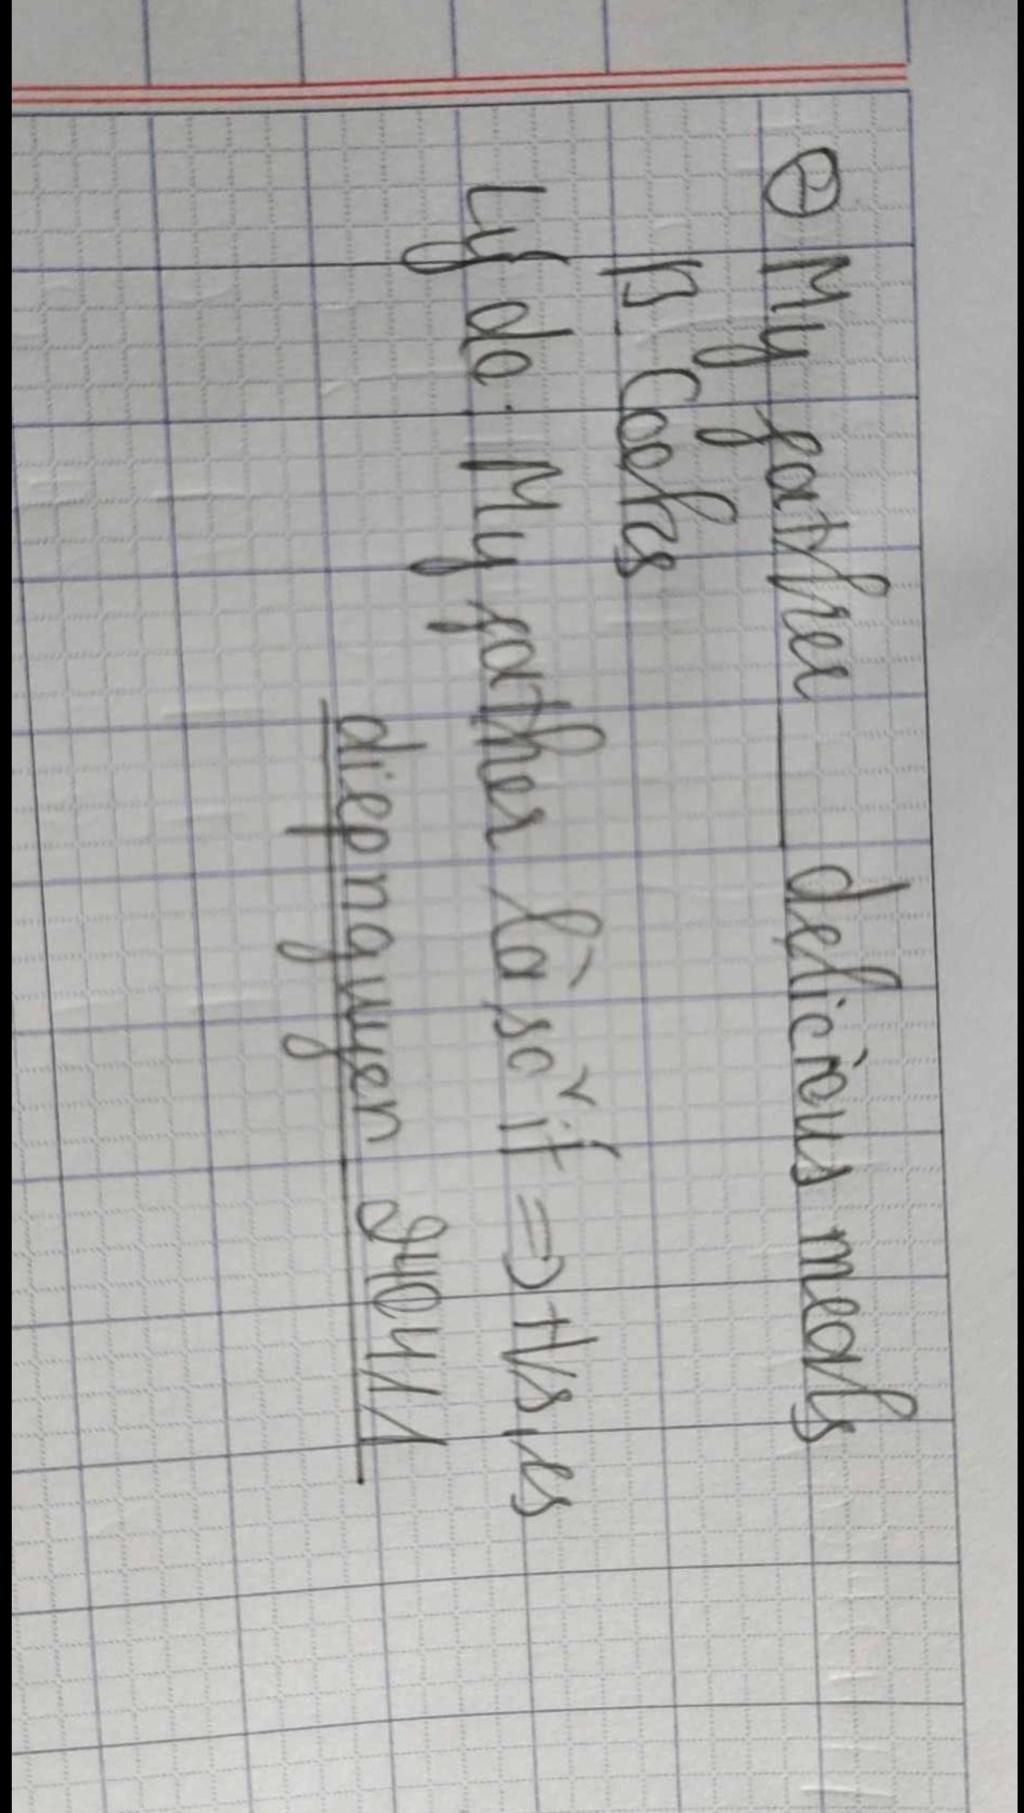 ⊖ My father ___ delicious meals
B. Cooks
Lý do: My father là số ít => + V/s, es
diepnguyen 940411